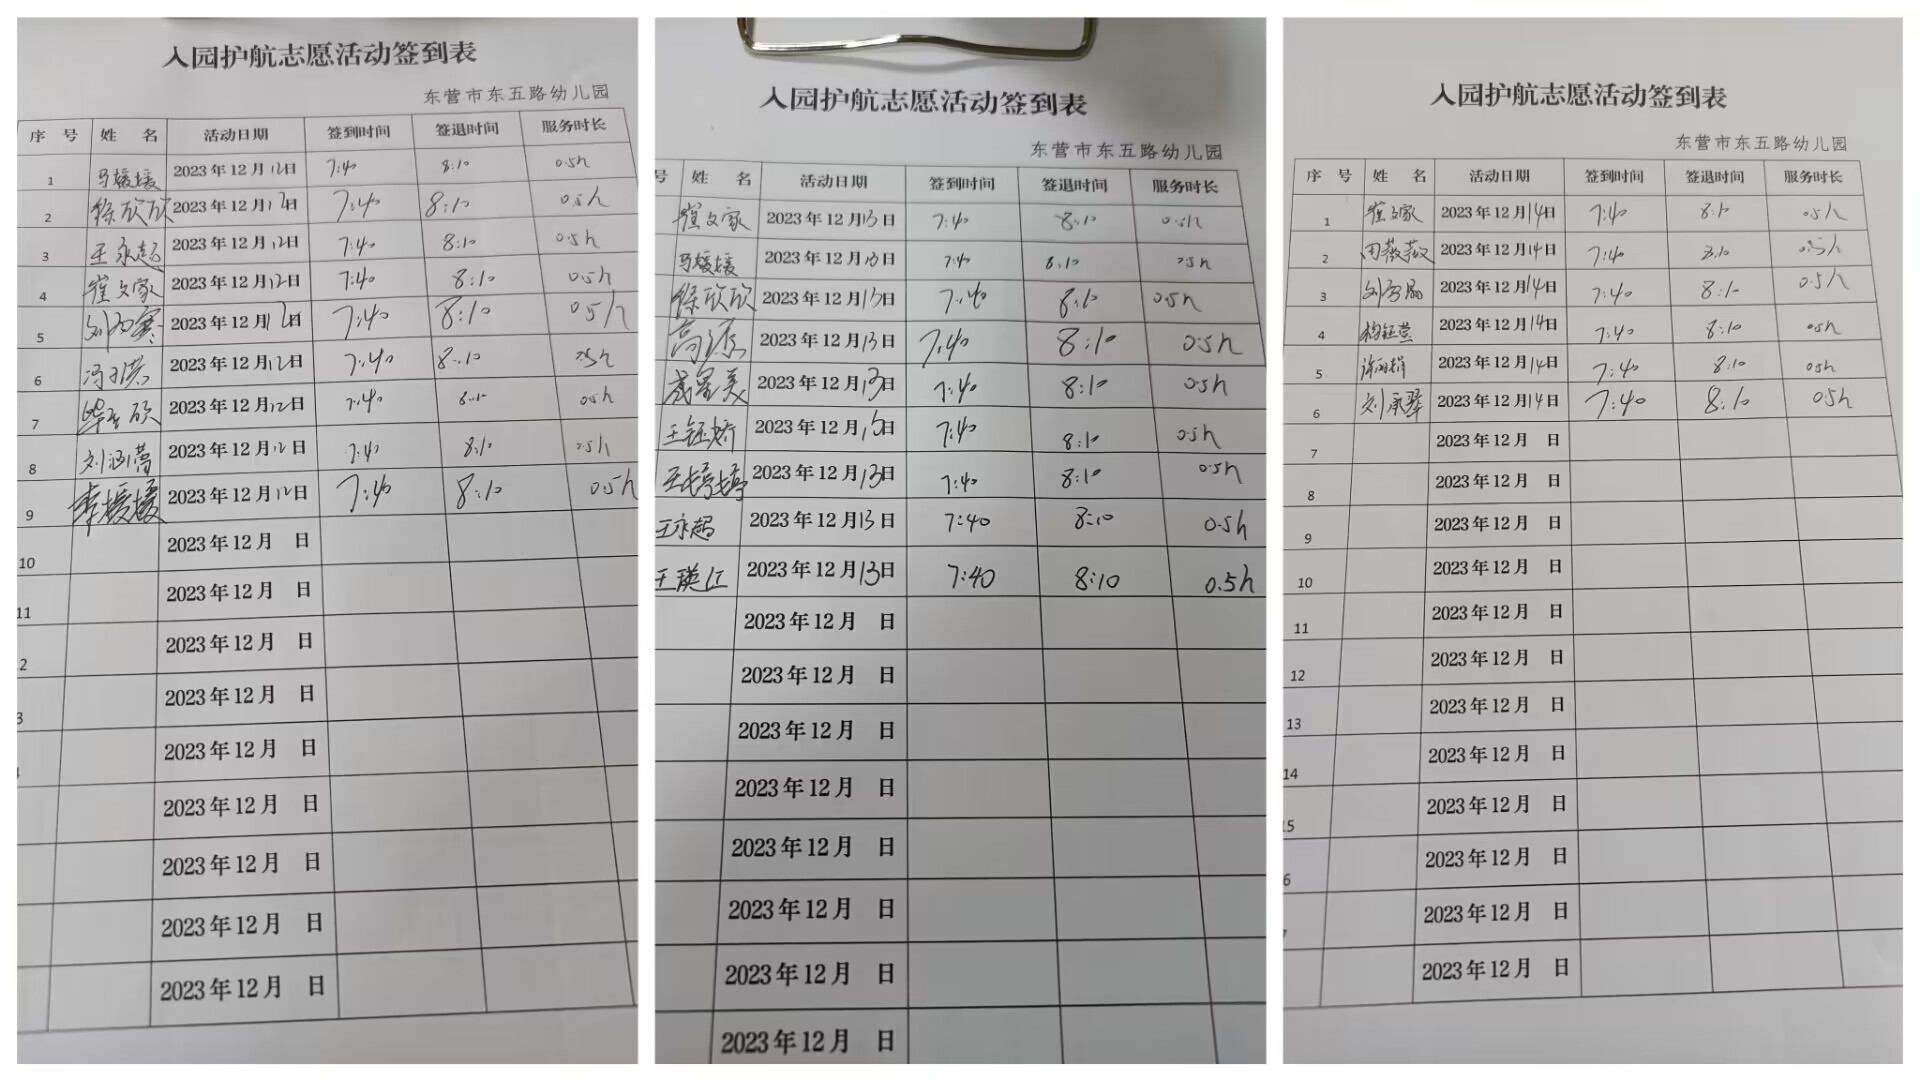 入园护航志愿活动签到表
东营市东五路幼儿园
序 号 姓 名 活动日期 签到时间 签退时间 服务时长
1 马媛媛 2023年12月12日 7:40 8:10 0.5h
2 徐欣欣 2023年12月12日 7:40 8:10 0.5h
3 王永超 2023年12月12日 7:40 8:10 0.5h
4 崔文家 2023年12月12日 7:40 8:10 0.5h
5 2023年12月12日 7:40 8:10 0.5h
6 2023年12月12日 7:40 8:10 0.5h
7 2023年12月12日 7:40 8:10 0.5h
8 刘涵 2023年12月12日 7:40 8:10 0.5h
9 李媛媛 2023年12月12日 7:40 8:10 0.5h
10 2023年12月 日
11 2023年12月 日
2 2023年12月 日
3 2023年12月 日
2023年12月 日
2023年12月 日
2023年12月 日
2023年12月 日
2023年12月 日
入园护航志愿活动签到表
东营市东五路幼儿园
号 姓 名 活动日期 签到时间 签退时间 服务时长
崔文家 2023年12月13日 7:40 8:10 0.5h
马媛媛 2023年12月13日 7:40 8:10 0.5h
徐欣欣 2023年12月13日 7:40 8:10 0.5h
高 2023年12月13日 7:40 8:10 0.5h
美 2023年12月13日 7:40 8:10 0.5h
王钰娇 2023年12月13日 7:40 8:10 0.5h
王婷婷 2023年12月13日 7:40 8:10 0.5h
王永超 2023年12月13日 7:40 8:10 0.5h
王瑛江 2023年12月13日 7:40 8:10 0.5h
2023年12月 日
2023年12月 日
2023年12月 日
2023年12月 日
2023年12月 日
2023年12月 日
2023年12月 日
2023年12月 日
入园护航志愿活动签到表
东营市东五路幼儿园
序 号 姓 名 活动日期 签到时间 签退时间 服务时长
1 崔文家 2023年12月14日 7:40 8:10 0.5h
2 2023年12月14日 7:40 8:10 0.5h
3 刘 2023年12月14日 7:40 8:10 0.5h
4 2023年12月14日 7:40 8:10 0.5h
5 2023年12月14日 7:40 8:10 0.5h
6 刘 2023年12月14日 7:40 8:10 0.5h
7 2023年12月 日
8 2023年12月 日
9 2023年12月 日
10 2023年12月 日
11 2023年12月 日
12 2023年12月 日
13 2023年12月 日
14 2023年12月 日
15 2023年12月 日
6 2023年12月 日
7 2023年12月 日
2023年12月 日